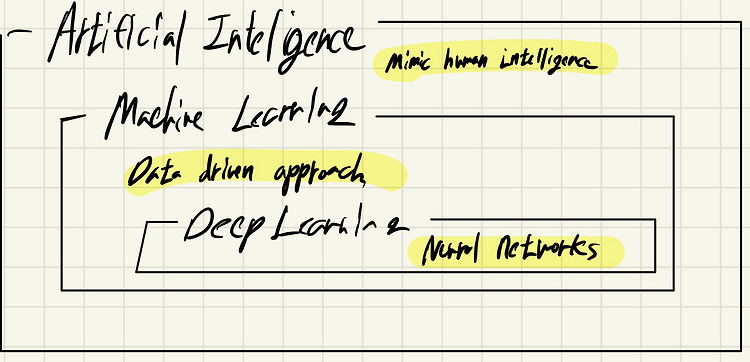 Artificial Inteligence
Mimic human intelligence
Machine Learning
Data driven approach
Deep Learning
Neural Networks